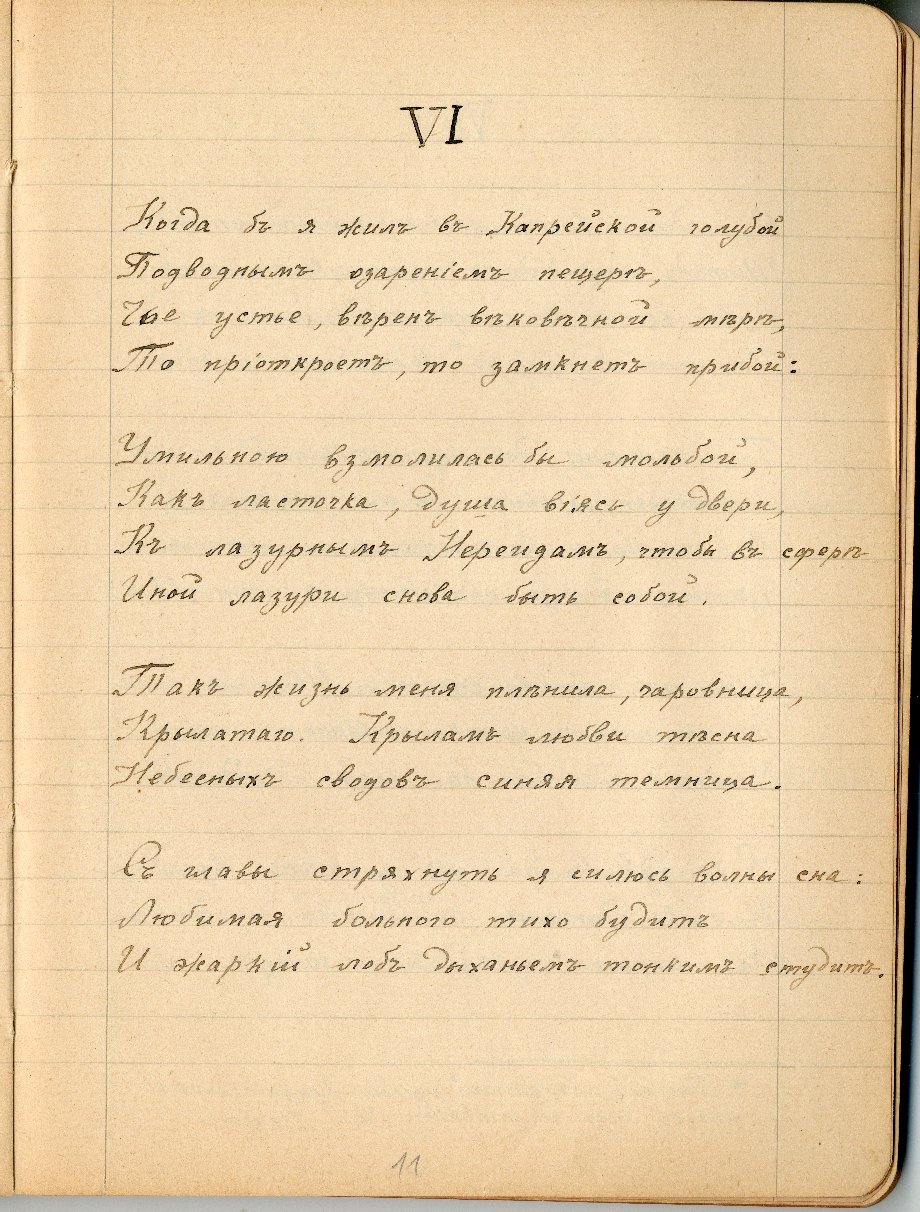 VI
Когда бъ я жилъ въ Капрейской голубой
Подводнымъ озареніемъ пещерѣ,
Чье устье, вѣренъ вѣковѣчной мѣрѣ,
То пріоткроетъ, то замкнетъ прибой:
Умильною взмолилась бы мольбой,
Какъ ласточка, душа віясь у двери,
Къ лазурнымъ Нереидамъ, чтобы въ сферѣ
Иной лазури снова быть собой.
Такъ жизнь меня плѣнила, чаровница,
Крылатаго. Крыламъ любви тѣсна
Небесныхъ сводовъ синяя темница.
Съ главы стряхнуть я силюсь волны сна:
Любимая больного тихо будитъ
И жаркій лобъ дыханьемъ тонкимъ студитъ.
11